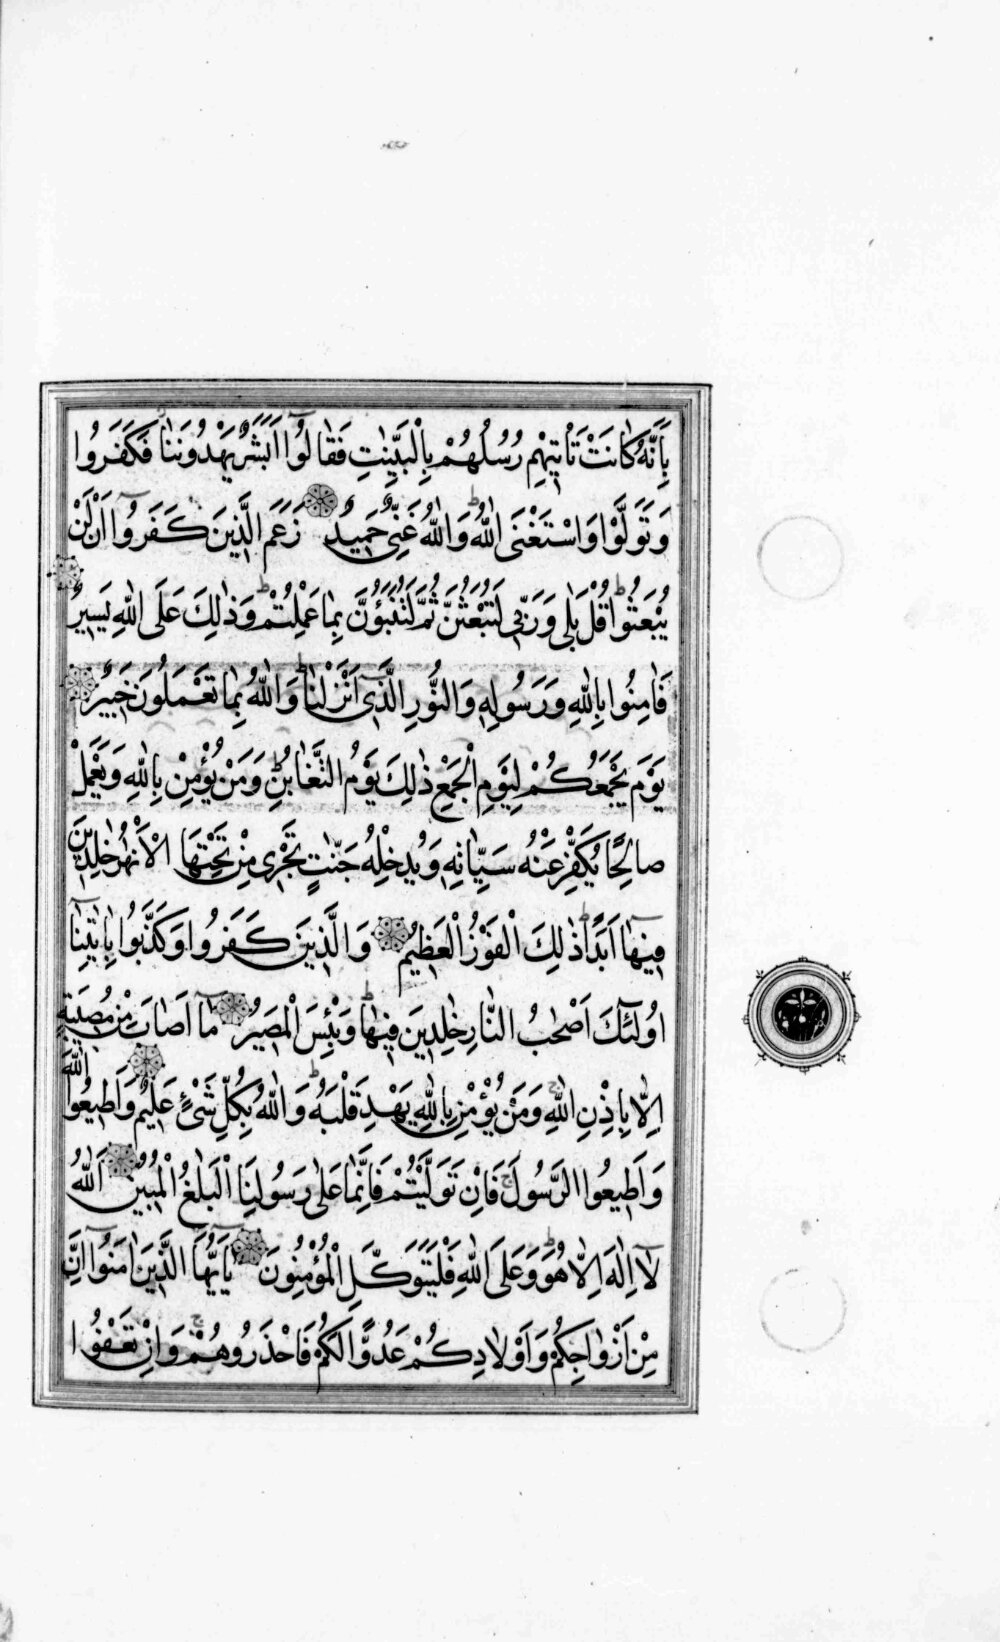 بِأَنَّهُ كَانَتْ تَأْتِيهِمْ رُسُلُهُمْ بِالْبَيِّنٰتِ فَقَالُوٓا اَبَشَرٌ يَهْدُونَنَا فَكَفَرُوا
وَتَوَلَّوْا وَاسْتَغْنَى اللّٰهُ ط وَاللّٰهُ غَنِىٌّ حَمِيدٌ زَعَمَ الَّذِينَ كَفَرُوٓا اَنْ لَنْ
يُبْعَثُوا ط قُلْ بَلٰى وَرَبِّى لَتُبْعَثُنَّ ثُمَّ لَتُنَبَّؤُنَّ بِمَا عَمِلْتُمْ ط وَذٰلِكَ عَلَى اللّٰهِ يَسِيرٌ
فَاٰمِنُوا بِاللّٰهِ وَرَسُولِهِ وَالنُّورِ الَّذِىٓ اَنْزَلْنَا ط وَاللّٰهُ بِمَا تَعْمَلُونَ خَبِيرٌ
يَوْمَ يَجْمَعُكُمْ لِيَوْمِ الْجَمْعِ ذٰلِكَ يَوْمُ التَّغَابُنِ ط وَمَنْ يُؤْمِنْ بِاللّٰهِ وَيَعْمَلْ
صَالِحًا يُكَفِّرْ عَنْهُ سَيِّاٰتِهِ وَيُدْخِلْهُ جَنّٰتٍ تَجْرِى مِنْ تَحْتِهَا الْاَنْهٰرُ خٰلِدِينَ
فِيهَآ اَبَدًا ط ذٰلِكَ الْفَوْزُ الْعَظِيمُ وَالَّذِينَ كَفَرُوا وَكَذَّبُوا بِاٰيٰتِنَآ
اُولٰٓئِكَ اَصْحٰبُ النَّارِ خٰلِدِينَ فِيهَا ط وَبِئْسَ الْمَصِيرُ مَآ اَصَابَ مِنْ مُصِيبَةٍ
اِلَّا بِاِذْنِ اللّٰهِ ج وَمَنْ يُؤْمِنْ بِاللّٰهِ يَهْدِ قَلْبَهُ ط وَاللّٰهُ بِكُلِّ شَىْءٍ عَلِيمٌ وَاَطِيعُوا اللّٰهَ
وَاَطِيعُوا الرَّسُولَ ج فَاِنْ تَوَلَّيْتُمْ فَاِنَّمَا عَلٰى رَسُولِنَا الْبَلٰغُ الْمُبِينُ اَللّٰهُ
لَآ اِلٰهَ اِلَّا هُوَ ط وَعَلَى اللّٰهِ فَلْيَتَوَكَّلِ الْمُؤْمِنُونَ يَآاَيُّهَا الَّذِينَ اٰمَنُوٓا اِنَّ
مِنْ اَزْوَاجِكُمْ وَاَوْلَادِكُمْ عَدُوًّا لَكُمْ فَاحْذَرُوهُمْ ج وَاِنْ تَعْفُوا